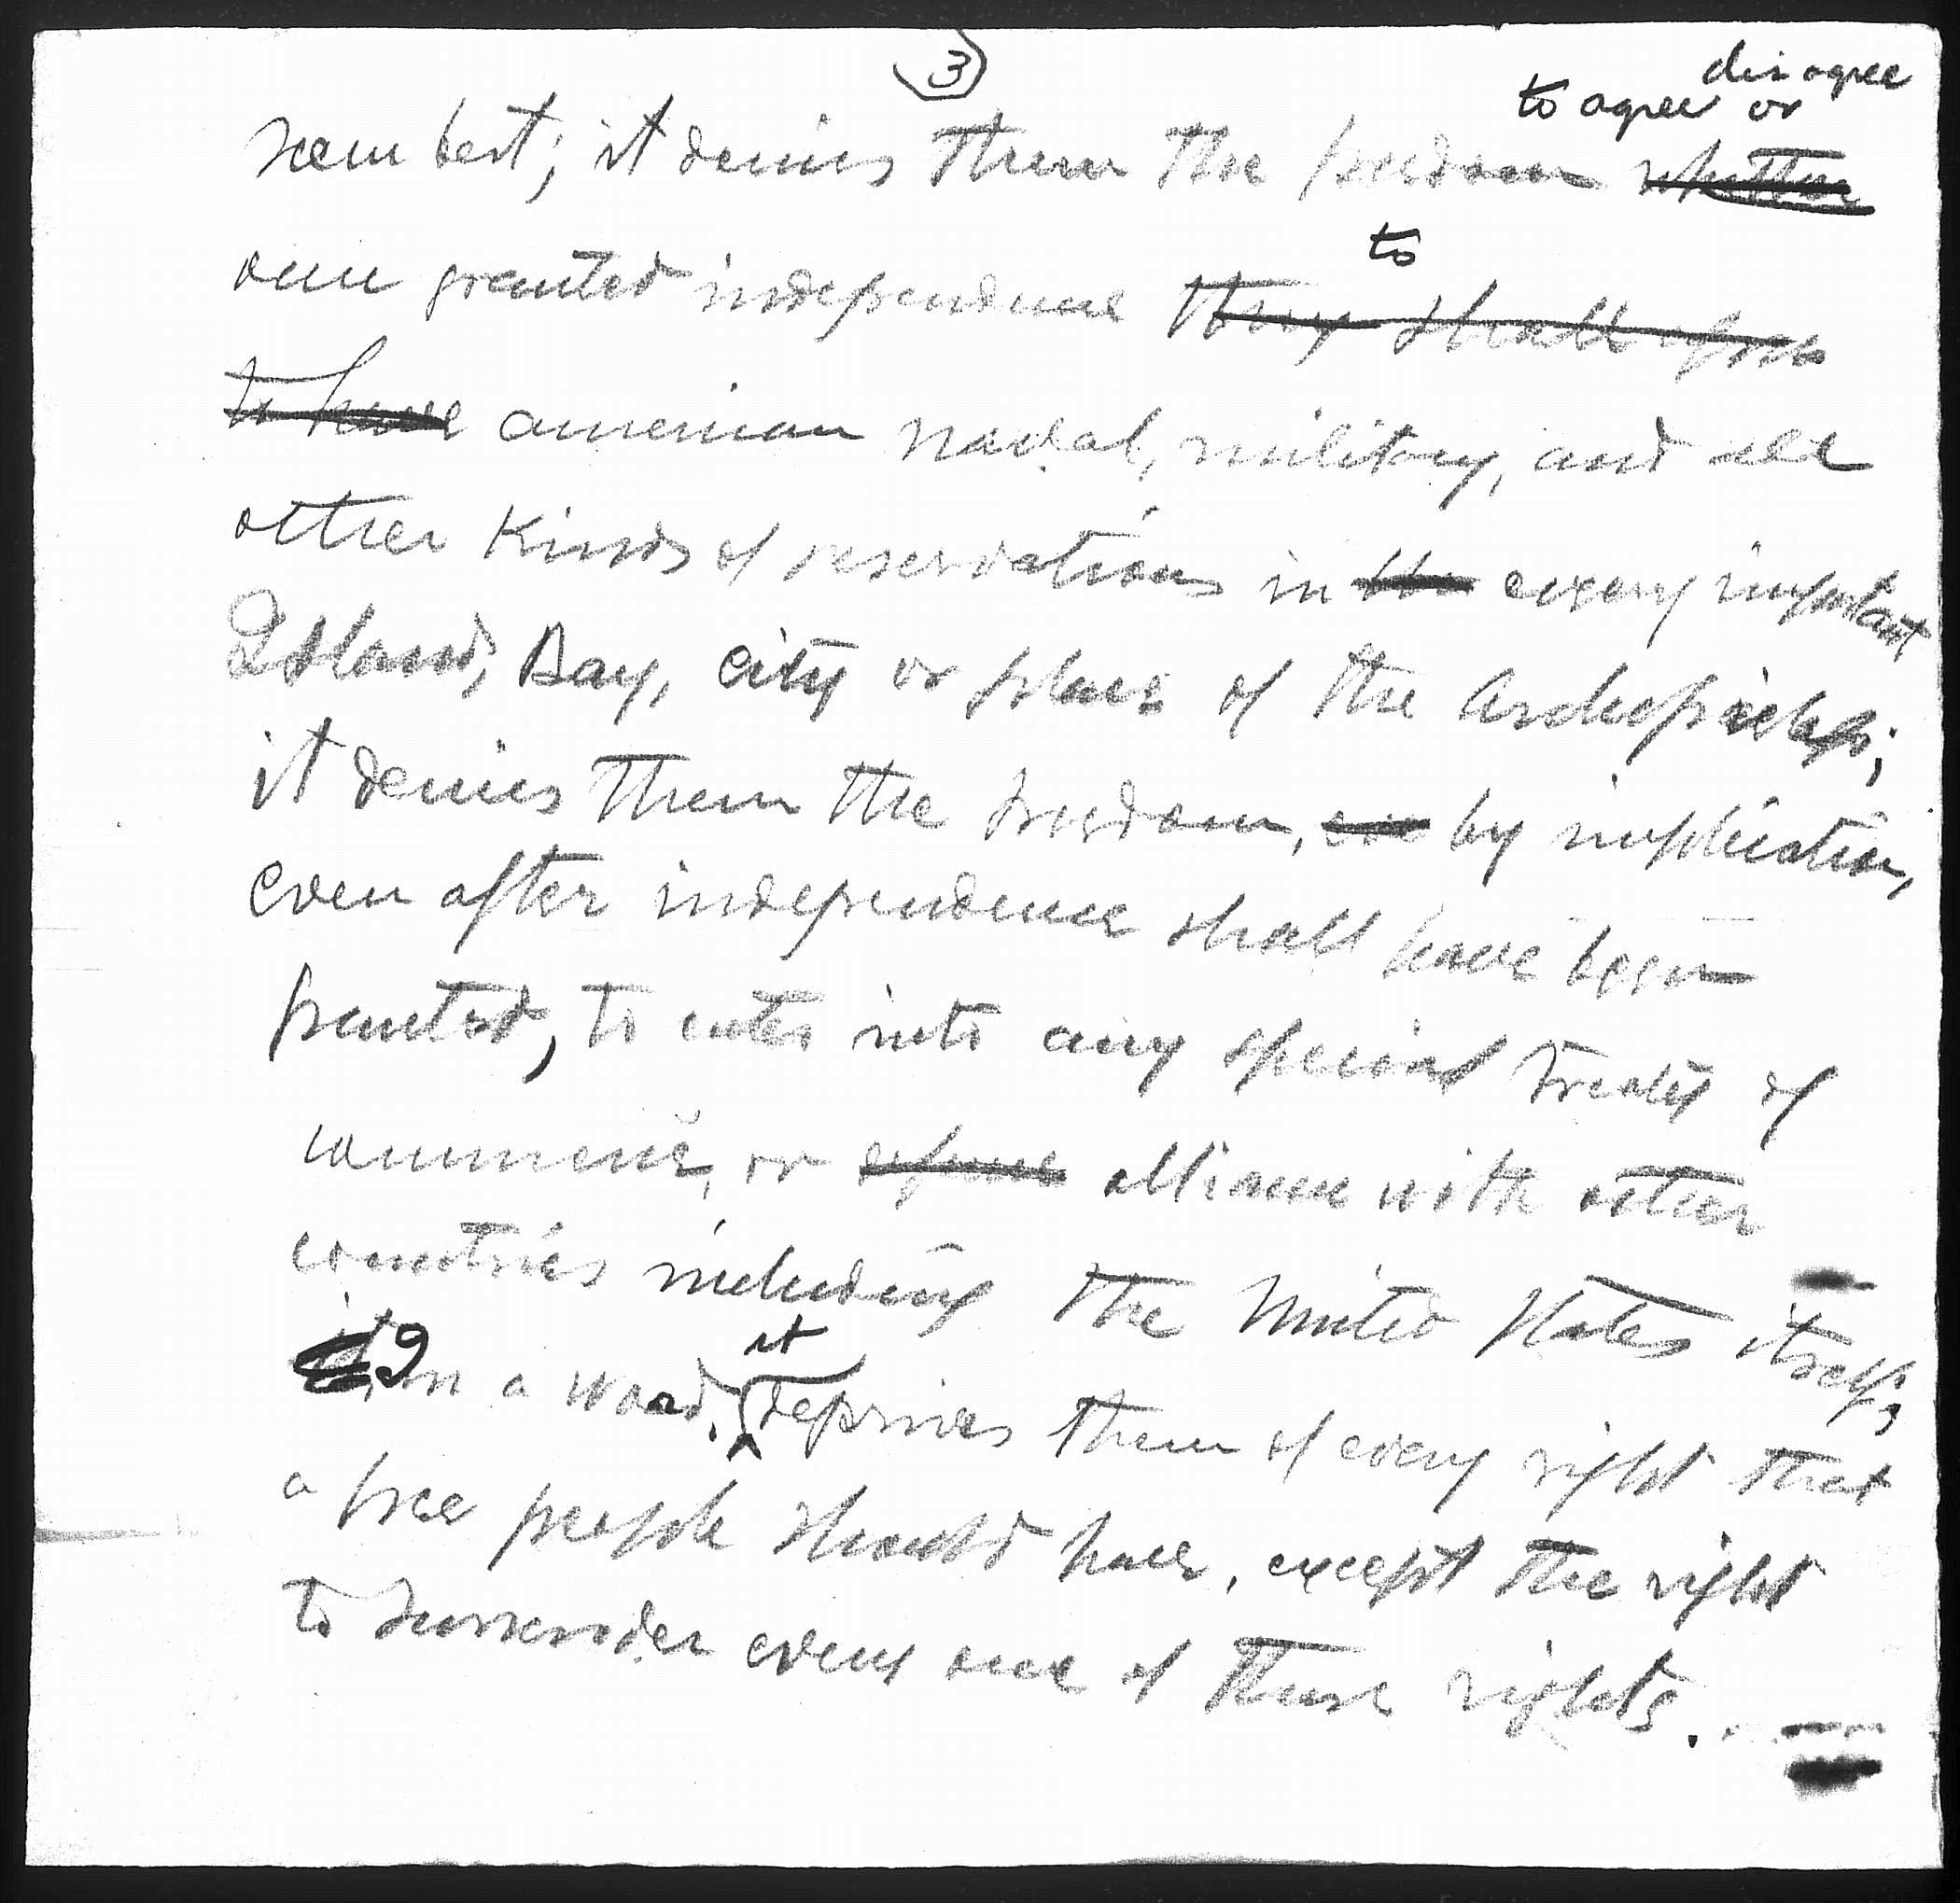 3
disagree
to agree or
seem best; it denies them the freedom whether
once granted independence to they shall agree
to have american naval, military, and all
other kinds of reservations in the every important
Island, Bay, city or place of the Archepielago;
it denies them the freedom, by implication,
even after independence shall have been
granted, to enter into any special treaty of
commerce, or alliance with other
countries including the United States itself;
in a word, it deprives them of every right that
a free people should have, except the right
to surrender every one of these rights.